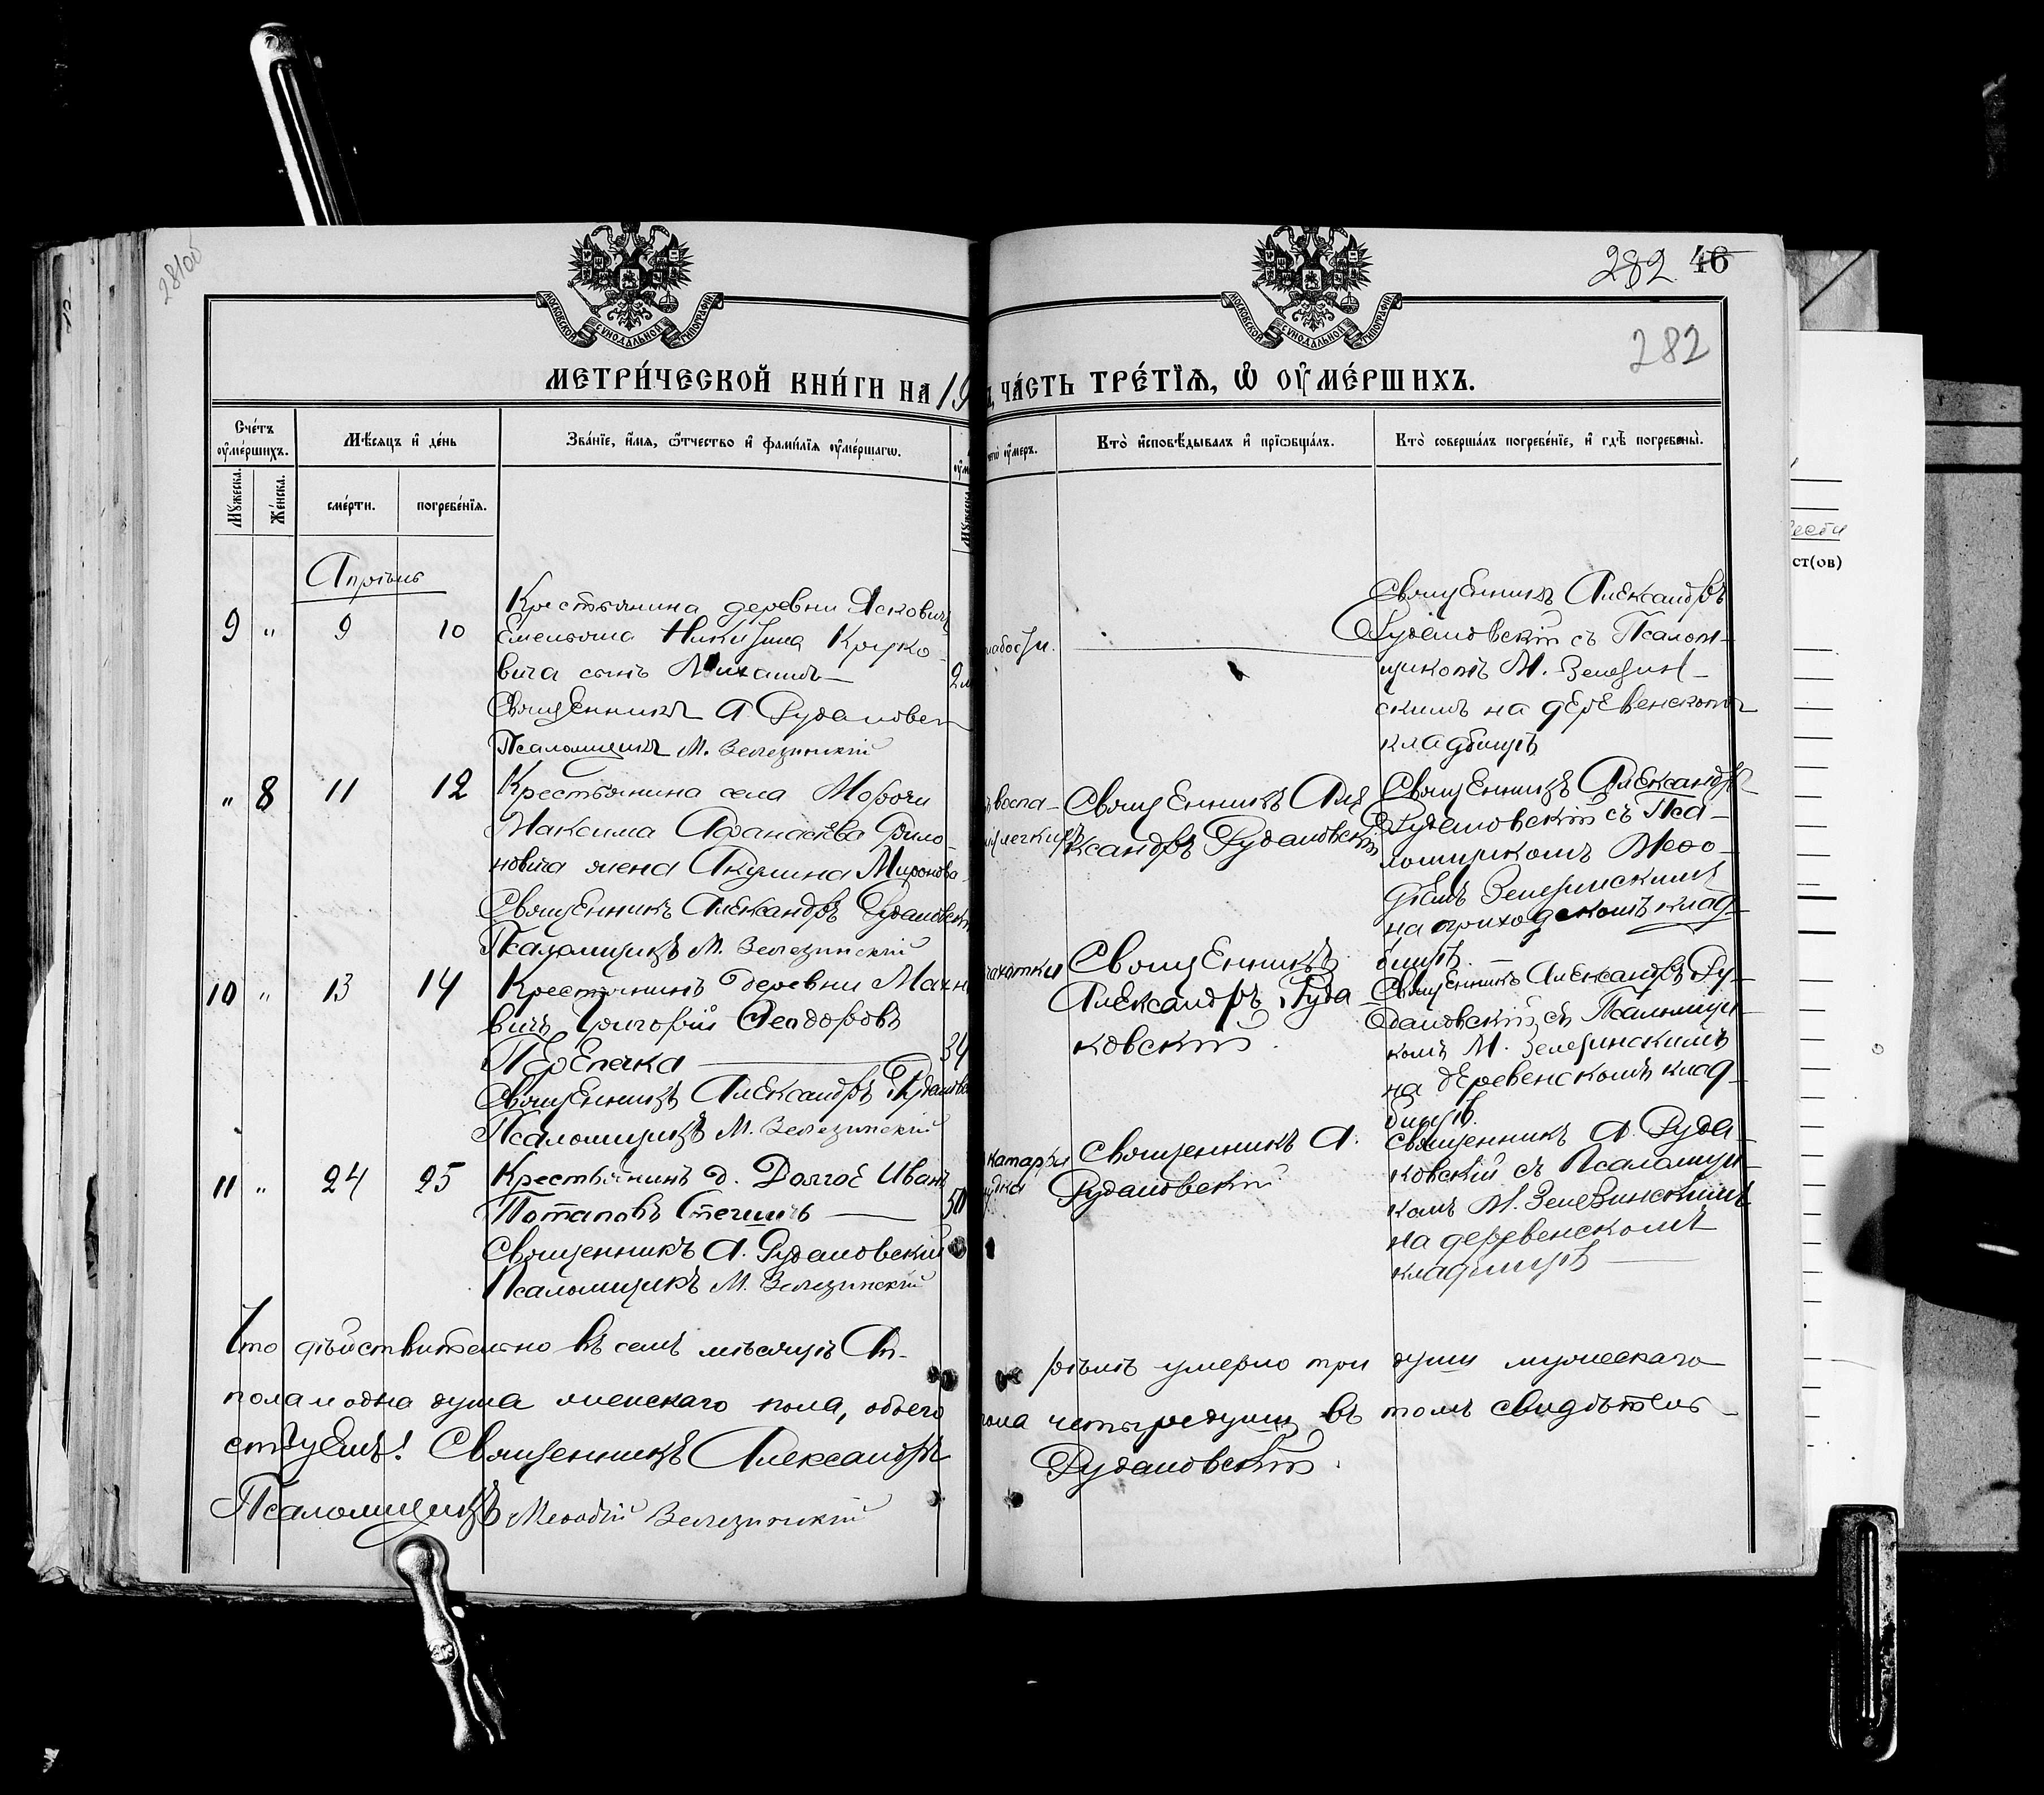 28100
МОСКОВСКОЙ СѴНОДАЛЬНОЙ ТИПОГРАФІИ
МОСКОВСКОЙ СѴНОДАЛЬНОЙ ТИПОГРАФІИ
282 46
282
МЕТРИ́ЧЕСКОЙ КНИ́ГИ НА 19
ЧА́СТЬ ТРЕ́ТЇѦ, Ѡ҆ ОУ҆МЕ́РШИХЪ.
Сче́тъ оу҆ме́ршихъ.
Мѣ́сѧцъ и҆ де́нь
Зва́нїе, и҆́мѧ, ѻ҆́тчество и҆ фами́лїѧ оу҆ме́ршагѡ.
чегѡ̀ оу҆́меръ.
Кто̀ и҆сповѣ́дывалъ и҆ прїѡбща́лъ.
Кто̀ соверша́лъ погребе́нїе, и҆ гдѣ̀ погребены̀.
Мꙋ́жеска.
Же́нска.
сме́рти.
погребе́нїѧ.
Мꙋ́жеска
Апрѣль
9 " 9 10
Крестьянина деревни Яскович
Емельяна Никитина Круко-
вича сынъ Михаилъ —
2 м
Священникъ А Рудаковск
Псаломщикъ М. Зелезинскій
слабости.
Священникъ Александръ
Рудаковскій съ Псалом-
щикомъ М. Зелезин-
скимъ на деревенскомъ
кладбищѣ
" 8 11 12
Крестьянина села Морочи
Максима Афанасьева Фило-
новича жена Акулина Миронова
Священникъ Александръ Рудаковскій
Псаломщикъ М. Зелезинскій
воспа-
легкихъ
Священникъ Але
ксандръ Рудаковскій
Священникъ Александръ
Рудаковскій съ Пса-
ломщикомъ Меѳо-
діемъ Зелезинскимъ
на приходскомъ клад-
бищѣ. —
10 " 13 14
Крестьянинъ деревни Махн
вичъ Григорій Ѳеодоровъ
Перепечка — 34
Священникъ Александръ Рудаковск
Псаломщикъ М. Зелезинскій
чахотки
Священникъ
Александръ Руда-
ковскій.
Священникъ Александръ Ру-
даковскій съ Псаломщи-
комъ М. Зелезинскимъ
на деревенскомъ клад-
бищѣ.
11 " 24 25
Крестьянинъ д. Долгое Иванъ
Потаповъ — 50
Священникъ А. Рудаковскій
Псаломщикъ М. Зелезинскій
катарра
Священникъ А.
Рудаковскій
Священникъ А. Руда-
ковскій съ Псаломщи-
комъ М. Зелезинскимъ
на деревенскомъ
кладбищѣ —
Что дѣйствительно въ семъ мѣсяцѣ Ап-
рѣлѣ умерло три души мужескаго
пола и одна душа женскаго пола, обоего
пола четыре души въ томъ свидѣтель-
ствуемъ! Священникъ Александръ
Рудаковскій.
Псаломщикъ Меѳодій Зелезинскій
ст(ов)